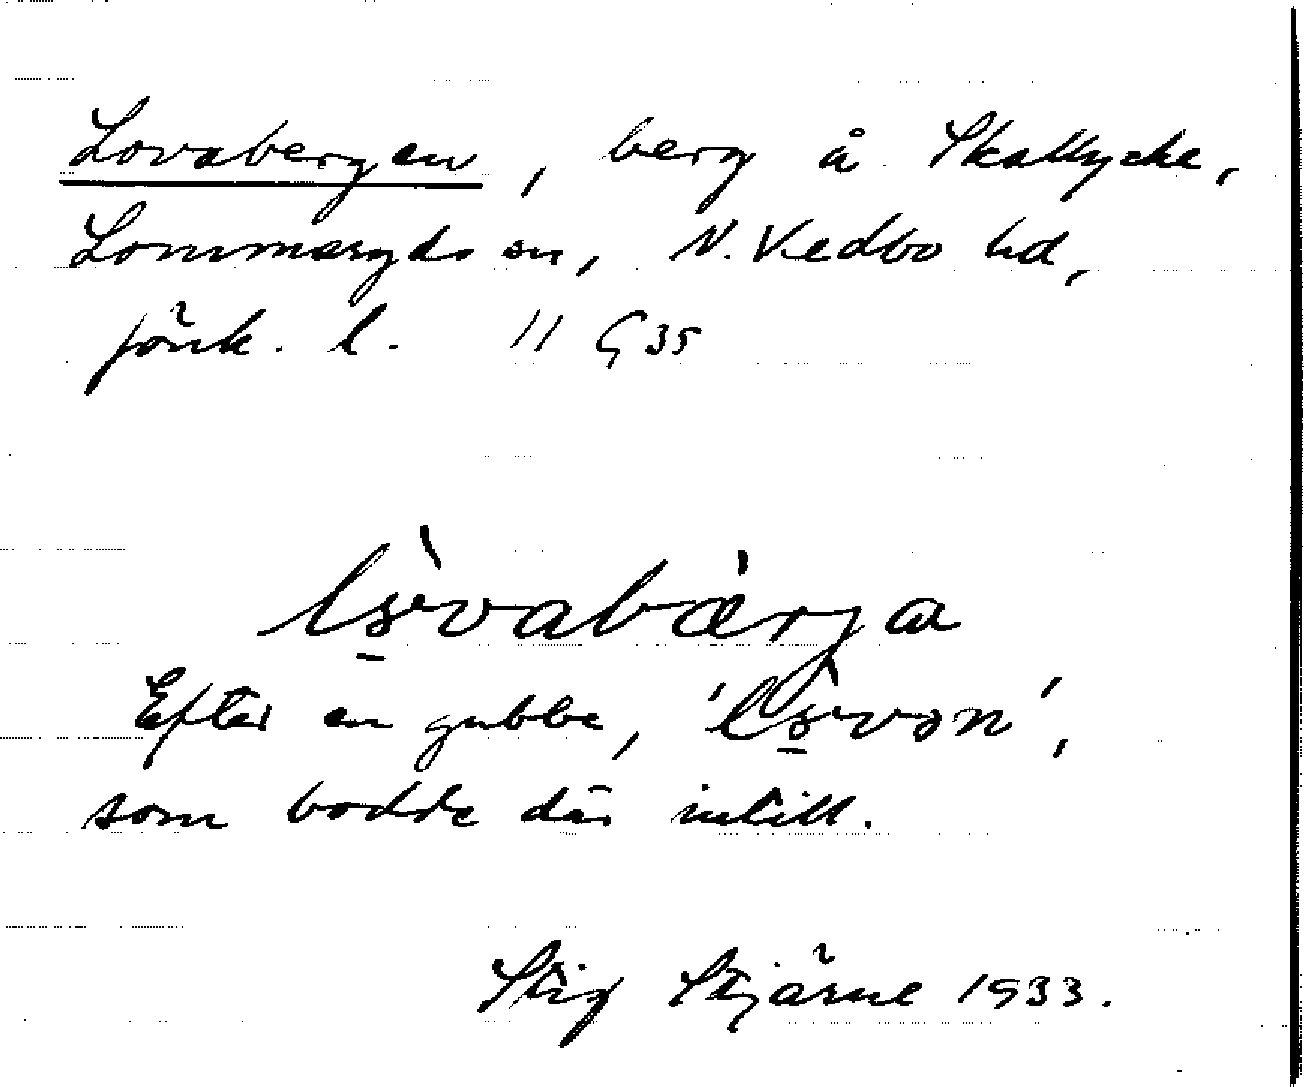 Lovabergen, berg å Skallycke,
Lommaryds sn, N. Vedbo hd,
Jönk. l. 11 G 35
Efter en gubbe,
som bodde där intill.
Stig Stjärne 1933.